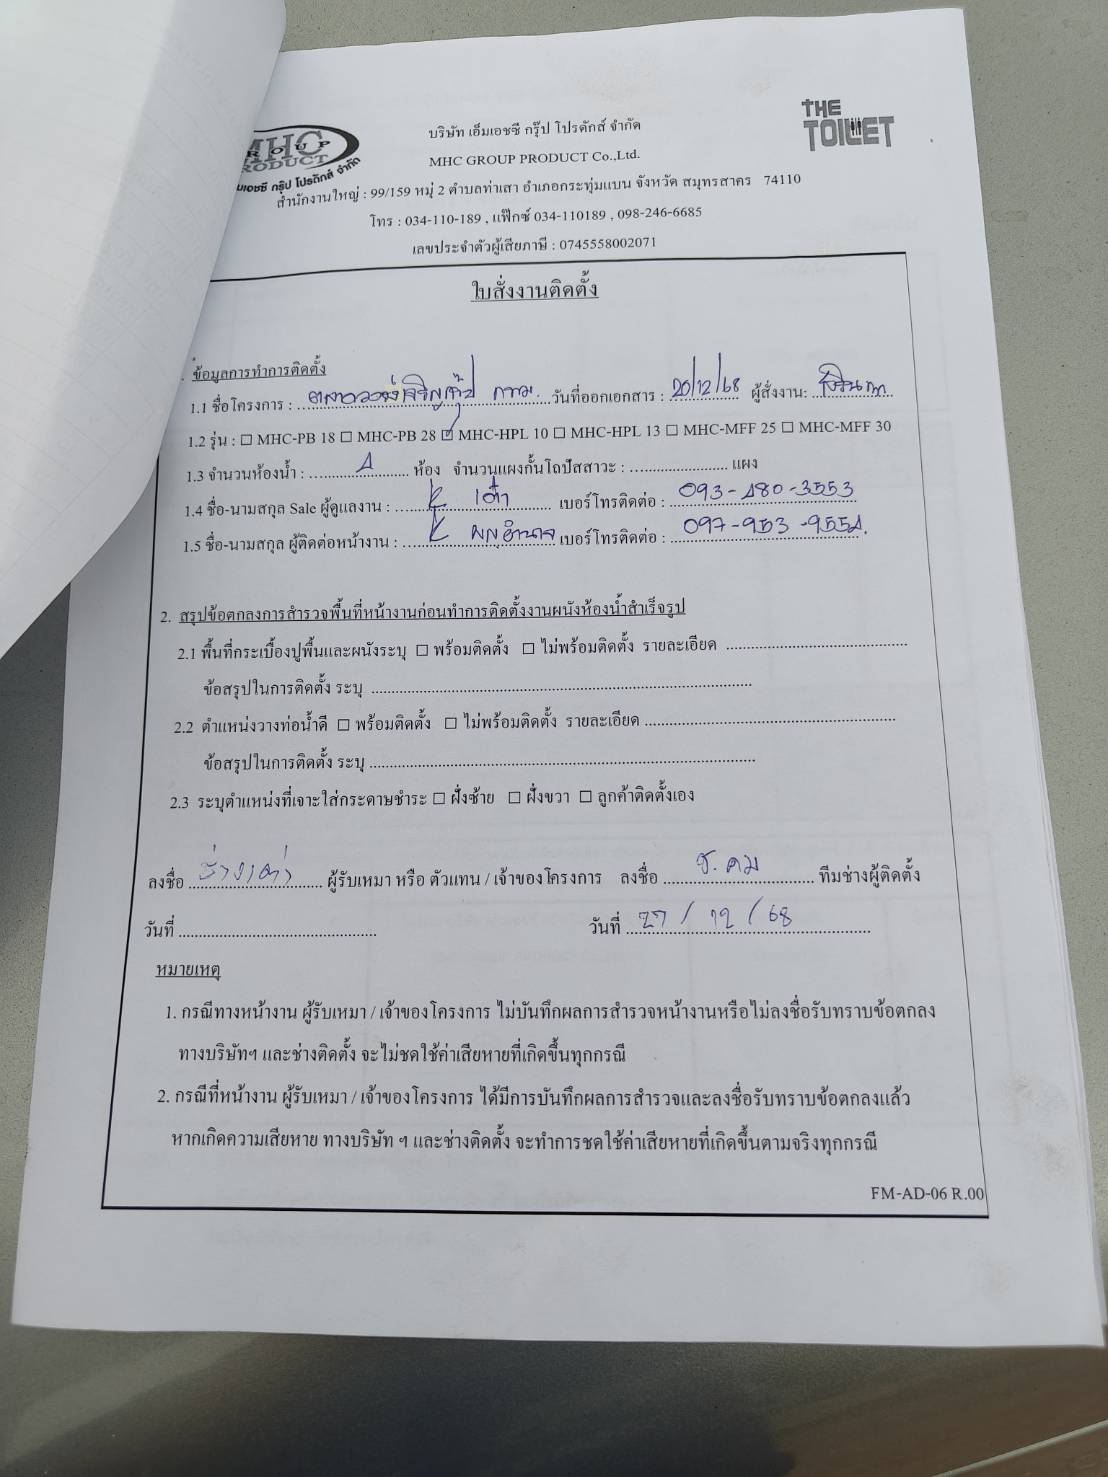 MHC
GROUP
PRODUCT
กรุ๊ป โปรดักส์ จำกัด
THE
TOILET
บริษัท เอ็มเอชซี กรุ๊ป โปรดักส์ จำกัด
MHC GROUP PRODUCT Co.,Ltd.
สำนักงานใหญ่ : 99/159 หมู่ 2 ตำบลท่าเสา อำเภอกระทุ่มแบน จังหวัด สมุทรสาคร 74110
โทร : 034-110-189 , แฟ๊กซ์ 034-110189 , 098-246-6685
เลขประจำตัวผู้เสียภาษี : 0745558002071
ใบสั่งงานติดตั้ง
ข้อมูลการทำการติดตั้ง
1.1 ชื่อโครงการ : กทม. วันที่ออกเอกสาร : 20/12/68 ผู้สั่งงาน:
1.2 รุ่น : ☐ MHC-PB 18 ☐ MHC-PB 28 ☑ MHC-HPL 10 ☐ MHC-HPL 13 ☐ MHC-MFF 25 ☐ MHC-MFF 30
1.3 จำนวนห้องน้ำ : 4 ห้อง จำนวนแผงกั้นโถปัสสาวะ : ........ แผง
1.4 ชื่อ-นามสกุล Sale ผู้ดูแลงาน : เต๋า เบอร์โทรติดต่อ : 093-480-3553
1.5 ชื่อ-นามสกุล ผู้ติดต่อหน้างาน : เบอร์โทรติดต่อ : 097-953-9554
2. สรุปข้อตกลงการสำรวจพื้นที่หน้างานก่อนทำการติดตั้งงานผนังห้องน้ำสำเร็จรูป
2.1 พื้นที่กระเบื้องปูพื้นและผนังระบุ ☐ พร้อมติดตั้ง ☐ ไม่พร้อมติดตั้ง รายละเอียด ........
ข้อสรุปในการติดตั้ง ระบุ ........
2.2 ตำแหน่งวางท่อน้ำดี ☐ พร้อมติดตั้ง ☐ ไม่พร้อมติดตั้ง รายละเอียด ........
ข้อสรุปในการติดตั้ง ระบุ ........
2.3 ระบุตำแหน่งที่เจาะใส่กระดาษชำระ ☐ ฝั่งซ้าย ☐ ฝั่งขวา ☐ ลูกค้าติดตั้งเอง
ลงชื่อ ช่างเต่า ผู้รับเหมา หรือ ตัวแทน / เจ้าของโครงการ ลงชื่อ ช.คม ทีมช่างผู้ติดตั้ง
วันที่ ........ วันที่ 27 / 12 / 68
หมายเหตุ
1. กรณีทางหน้างาน ผู้รับเหมา / เจ้าของโครงการ ไม่บันทึกผลการสำรวจหน้างานหรือไม่ลงชื่อรับทราบข้อตกลง
ทางบริษัทฯ และช่างติดตั้ง จะไม่ชดใช้ค่าเสียหายที่เกิดขึ้นทุกกรณี
2. กรณีที่หน้างาน ผู้รับเหมา / เจ้าของโครงการ ได้มีการบันทึกผลการสำรวจและลงชื่อรับทราบข้อตกลงแล้ว
หากเกิดความเสียหาย ทางบริษัท ฯ และช่างติดตั้ง จะทำการชดใช้ค่าเสียหายที่เกิดขึ้นตามจริงทุกกรณี
FM-AD-06 R.00